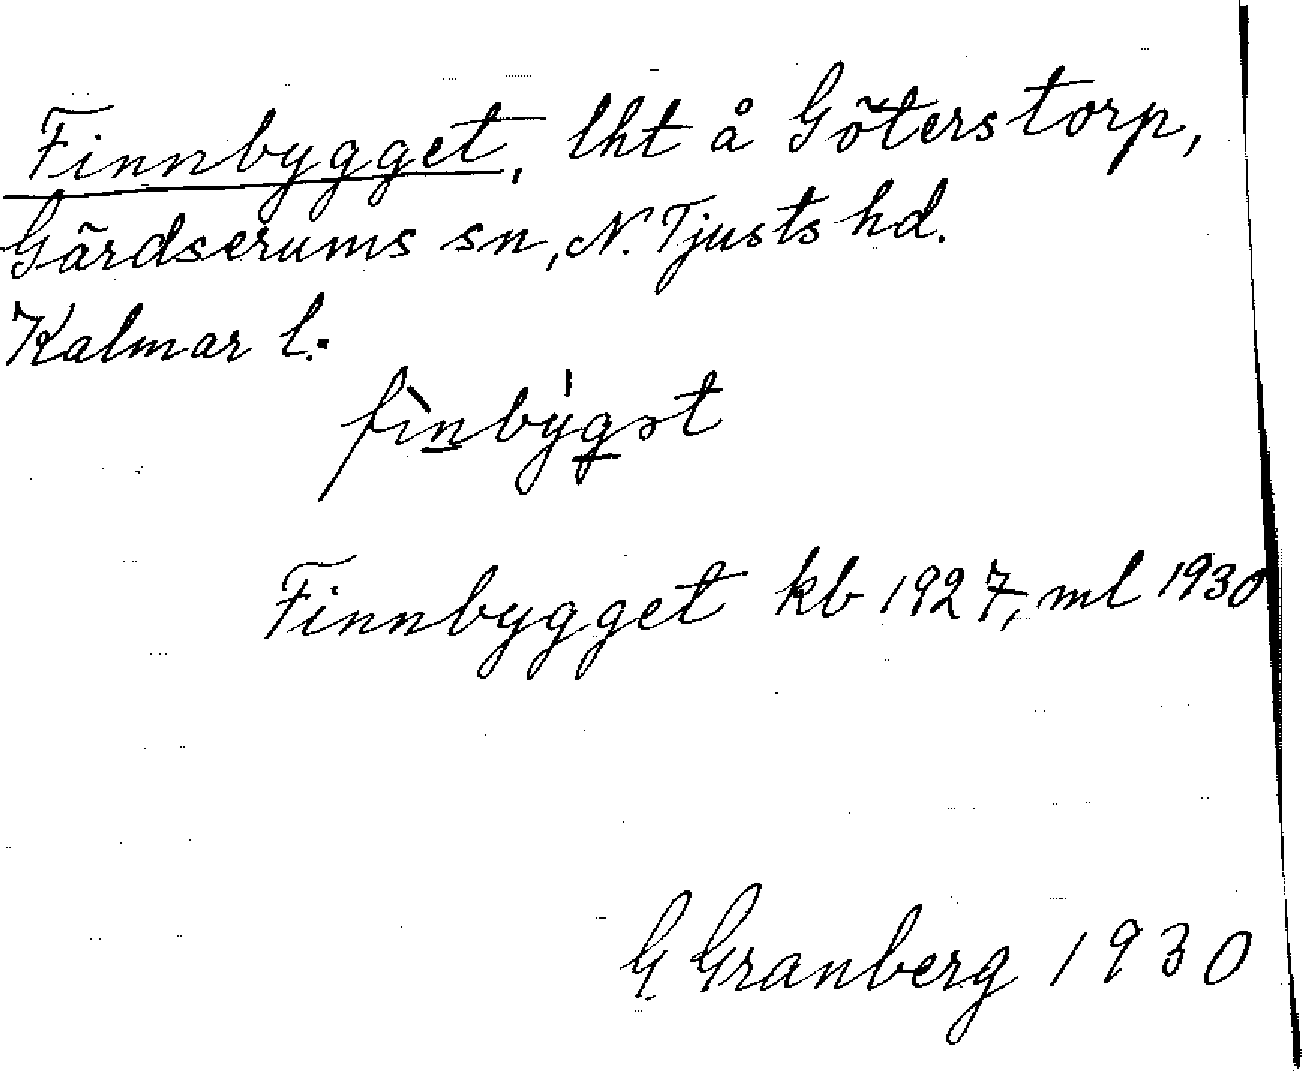 Finnbygget, lht å Göterstorp,
Gärdserums sn, N. Tjusts hd.
Kalmar l.
fìnby̍gət
Finnbygget kb 1927, ml 1930
G Granberg 1930